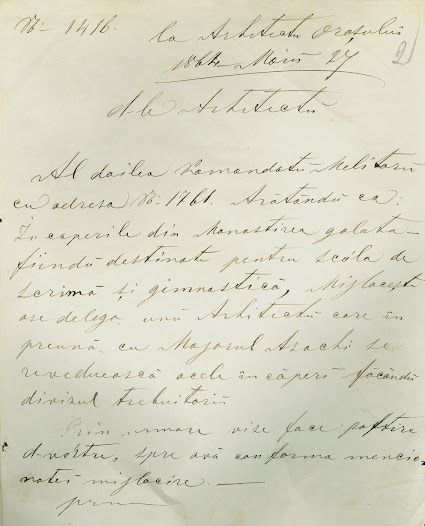 No 1416.
la Arhitectu Orașului
1864 Maiu 27
2
d-le Arhitectu
Al doilea Comandatu Melitaru
cu adresa No 1761. Arătându ca:
În caperile din Monastirea galata
fiindu destinate pentru scóla de
scrimă și gimnastică, Mijlocești
ase delega unu Arhitectu care în
preună cu Majorul Asachi se
reveduească acele încăperi făcăndu
divizul trebuitoriu
Prin urmare vise face poftire
d-vóstre, spre avă conforma mencio
natei mijlocire. —